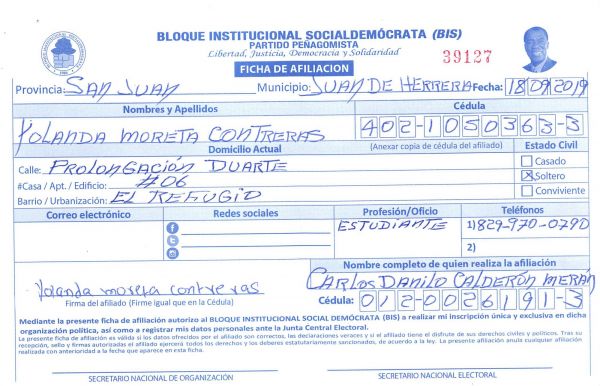 BLOQUE INSTITUCIONAL SOCIALDEMÓCRATA (BIS)
PARTIDO PEÑAGOMISTA
Libertad, Justicia, Democracia y Solidaridad
39127
FICHA DE AFILIACION
Provincia: SAN JUAN Municipio: JUAN DE HERRERA Fecha: 18/09/2019
Nombres y Apellidos Cédula
YOLANDA MORETA CONTRERAS 402-1050363-3
Domicilio Actual (Anexar copia de cédula del afiliado) Estado Civil
Calle: PROLONGACIÓN DUARTE Casado
#Casa / Apt. / Edificio: #06 Soltero
Barrio / Urbanización: EL REFUGIO Conviviente
Correo electrónico Redes sociales Profesión/Oficio Teléfonos
ESTUDIANTE 1) 829-970-0790
2)
Nombre completo de quien realiza la afiliación
Yolanda moreta contreras CARLOS DANILO CALDERÓN MERÁN
Firma del afiliado (Firme igual que en la Cédula) Cédula: 012-0026191-3
Mediante la presente ficha de afiliación autorizo al BLOQUE INSTITUCIONAL SOCIAL DEMÓCRATA (BIS) a realizar mi inscripción única y exclusiva en dicha
organización política, así como a registrar mis datos personales ante la Junta Central Electoral.
La presente ficha de afiliación es válida si los datos ofrecidos por el afiliado son correctos, las declaraciones veraces y si el afiliado tiene el disfrute de sus derechos civiles y políticos. Tras su
recepción, sello y firmas autorizadas el afiliado ejercerá todos los derechos y de deberes estatutariamente sancionados, de acuerdo a la ley. La presente afiliación anula cualquier afiliación
realizada con anterioridad a la fecha que aparece en esta ficha.
SECRETARIO NACIONAL DE ORGANIZACIÓN SECRETARIO NACIONAL ELECTORAL